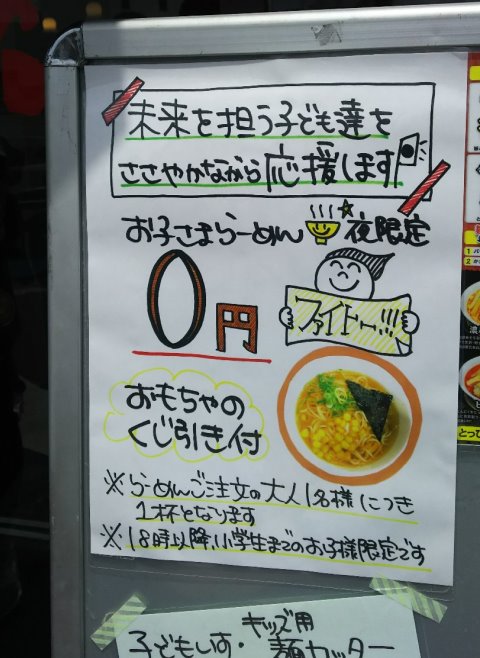 未来を担う子ども達を
ささやかながら応援します
お子さまらーめん 夜限定
0円
ファイトー!!!
おもちゃの
くじ引き付
※らーめんご注文の大人1名様につき
1杯となります
※18時以降、小学生までのお子様限定です
キッズ用
子どもいす・麺カッター